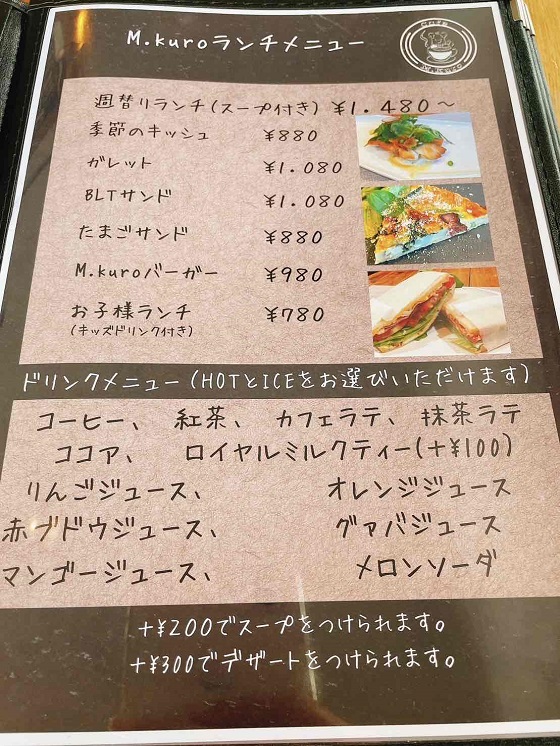 M.kuroランチメニュー
週替りランチ(スープ付き) ¥1.480～
季節のキッシュ ¥880
ガレット ¥1.080
BLTサンド ¥1.080
たまごサンド ¥880
M.kuroバーガー ¥980
お子様ランチ ¥780
(キッズドリンク付き)
ドリンクメニュー(HOTとICEをお選びいただけます)
コーヒー、 紅茶、 カフェラテ、 抹茶ラテ
ココア、 ロイヤルミルクティー(+¥100)
りんごジュース、 オレンジジュース
赤ブドウジュース、 グァバジュース
マンゴージュース、 メロンソーダ
+¥200でスープをつけられます。
+¥300でデザートをつけられます。